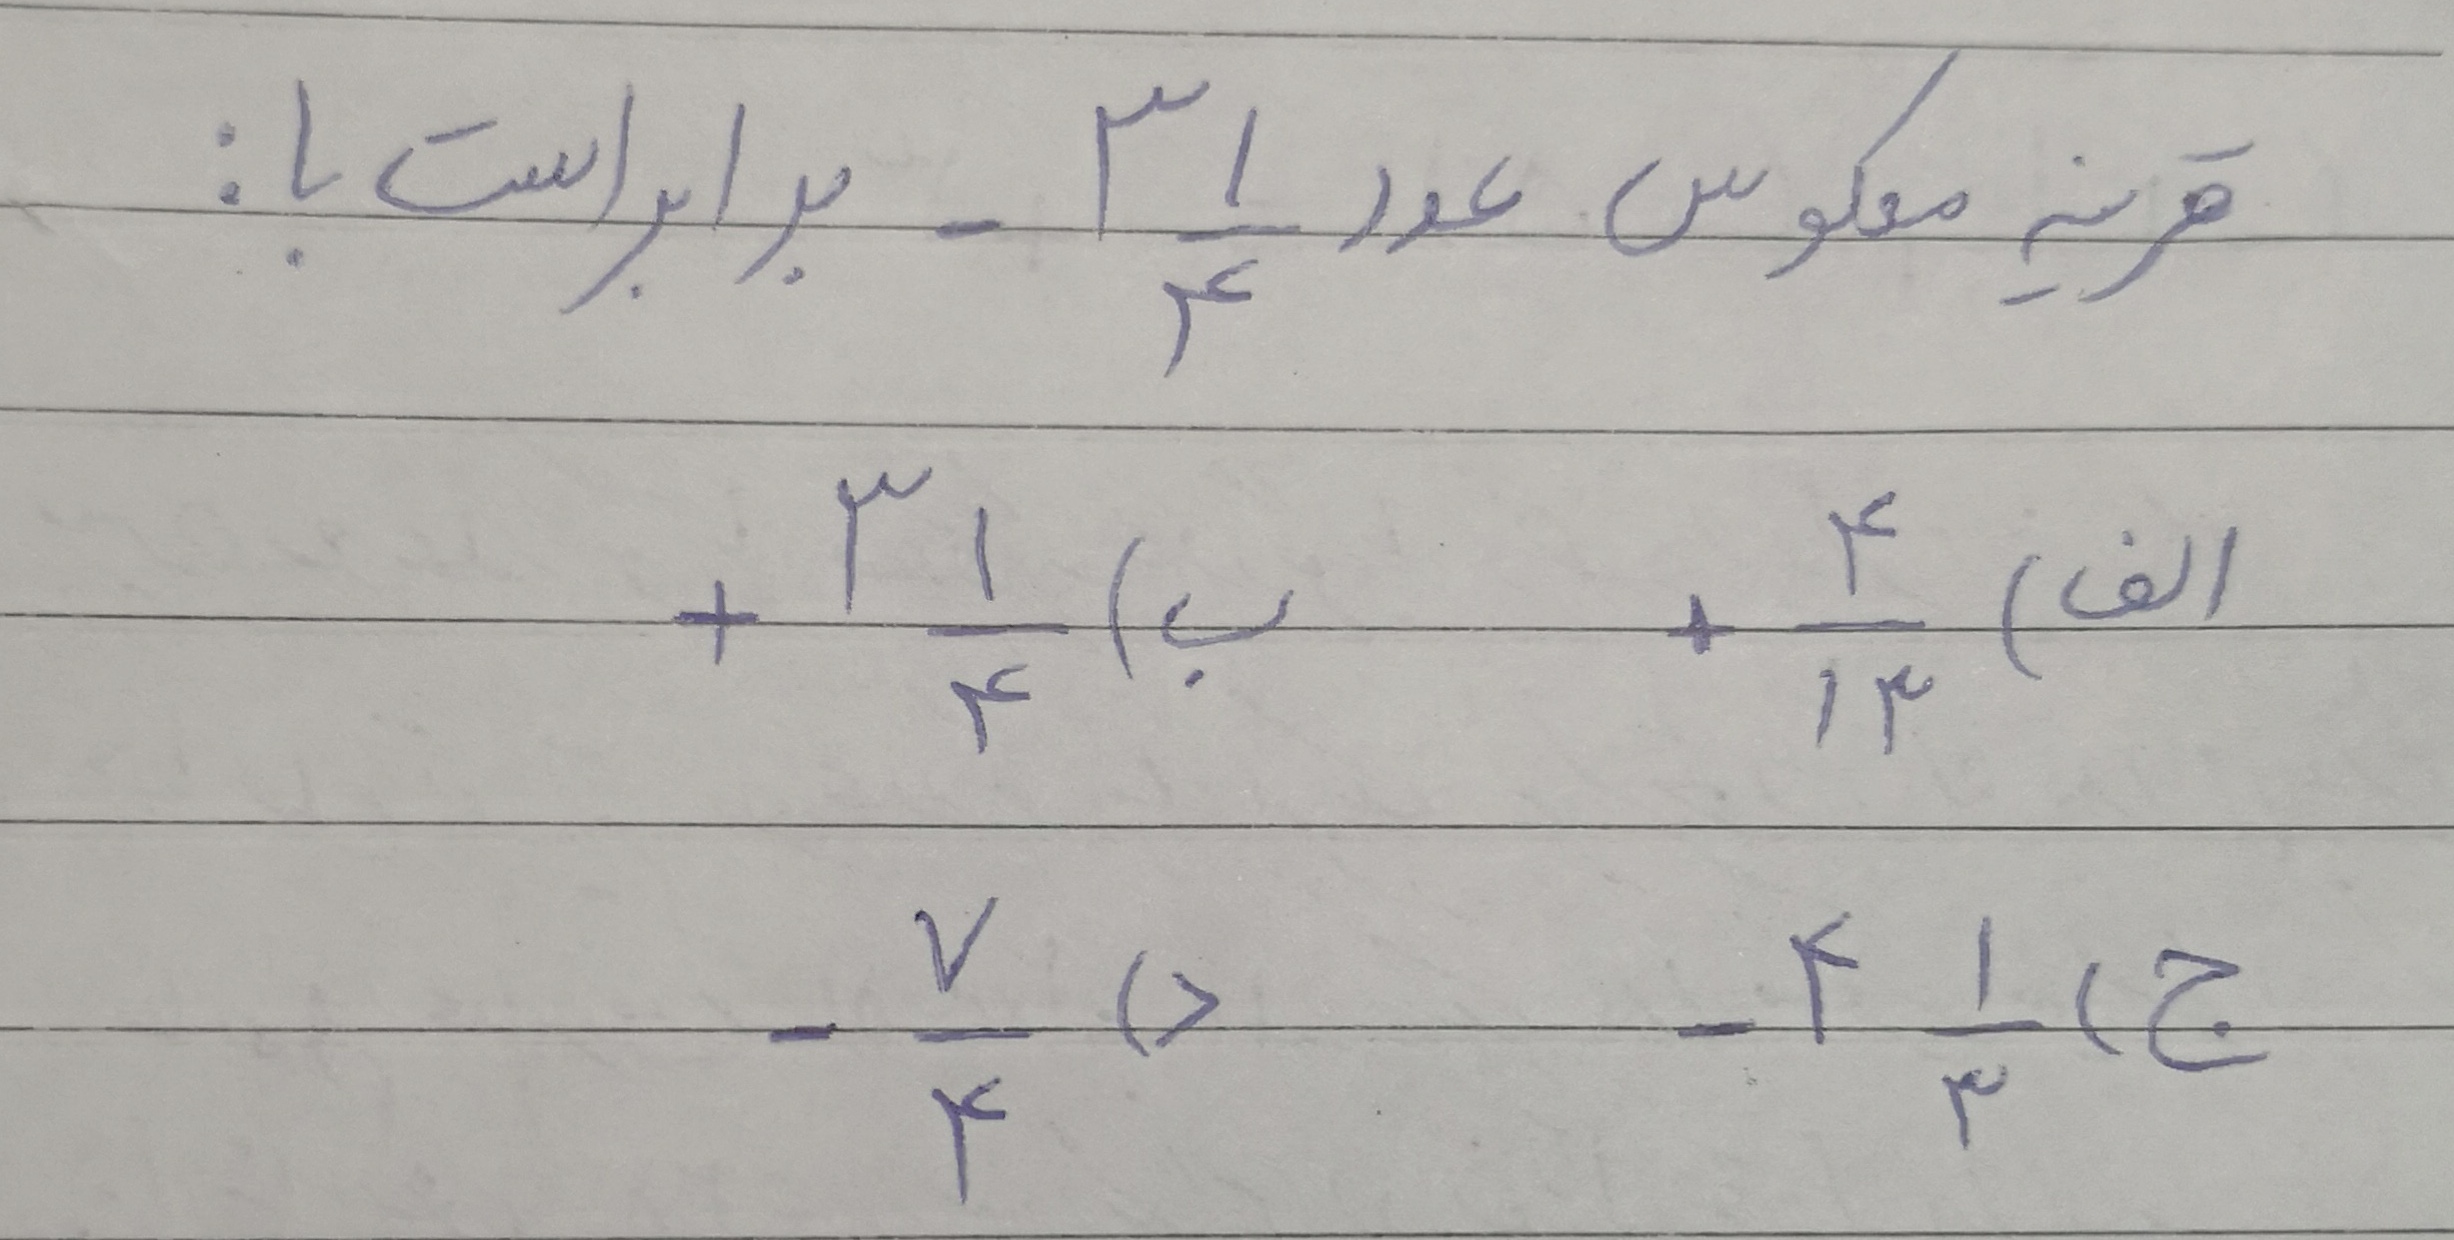 قرینهٔ معکوس عدد -۳ ۱/۴ برابر است با:
الف) +۴/۱۳ ب) +۳ ۱/۴
ج) -۴ ۱/۳ د) -۷/۴